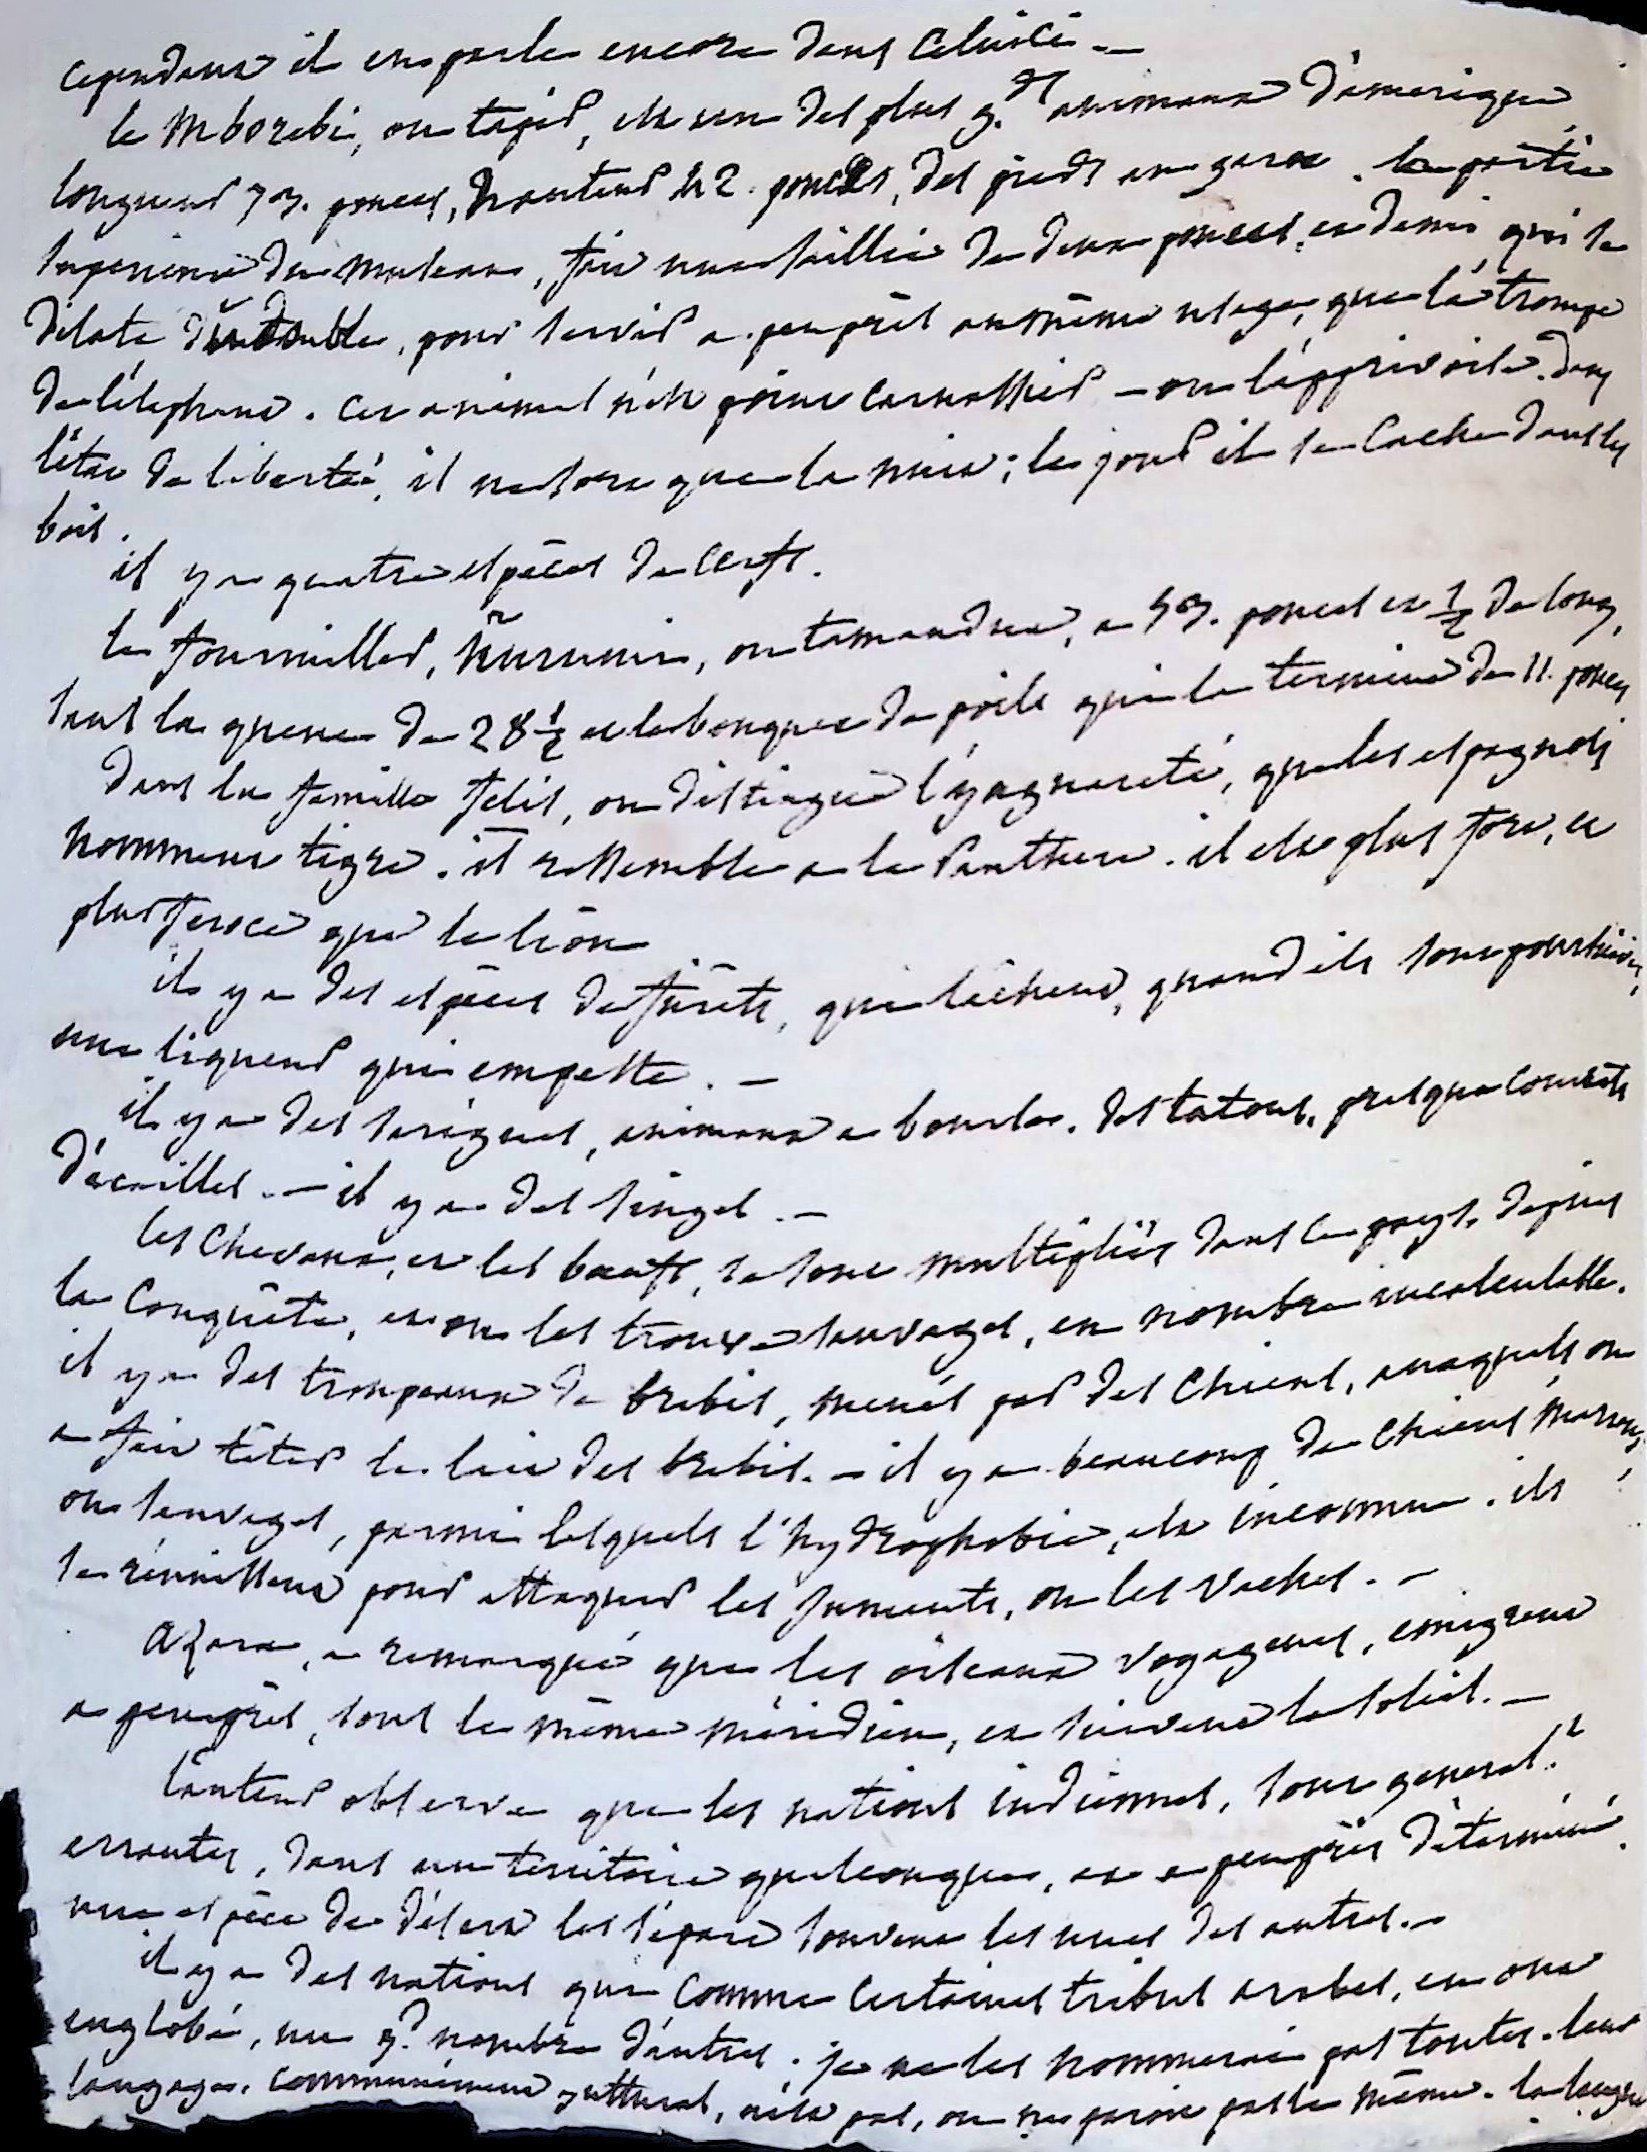 cependant il en parle encore dans celui ci. —
le Mborebi, ou tapir, est un des plus g.ds animaux d'amerique,
longueur 73. pouces, hauteur 42. pouces, des pieds au garot. la partie
superieure du museau, fait une saillie de deux pouces, et demi, qui se
dilate du double, pour servir a peu près au même usage, que la trompe
de l'élephant. cet animal n'est point carnassier — on l'apprivoise. dans
l'état de liberté, il ne sort que la nuit; le jour il se cache dans les
bois.
il y a quatre espèces de cerfs.
le fourmiller, ñurumi, ou tamandua, a 53. pouces et 1/2 de long,
sans la queue de 28 1/2 et le bouquet de poils qui la termine de 11. pouces
dans la famille felis, on distingue l'yaguareté, que les espagnols
nomment tigre. il ressemble a la Panthere. il est plus fort, et
plus feroce que le lion
il y a des espèces de furets, qui lâchent, quand ils sont poursuivis,
une liqueur qui empeste. —
il y a des sarigues, animaux a bourse. des tatous, presque couverts
d'écailles. — il y a des singes. —
les chevaux, et les bœufs, se sont multipliés dans ce pays, depuis
la conquête, et on les trouve sauvages, en nombre incalculable.
il y a des troupeaux de brebis, menés par des chiens, auxquels on
a fait têter le lait des brebis. — il y a beaucoup de chiens marrons,
ou sauvages, parmi lesquels l'hydrophobie, est inconnue. ils
se réunissent pour attaquer les juments, ou les vaches. —
Azara, a remarqué que les oiseaux voyageurs, emigrent
a peu près, sous le même méridien, et suivent le soleil. —
l'auteur observe que les nations indiennes, sont general.t
errantes, dans un territoire quelconque, et a peu près déterminé.
une espèce de désert les sépare souvent les unes des autres. —
il y a des nations qui comme certaines tribus arabes, en ont
englobé, un g.d nombre d'autres. je ne les nommerai pas toutes. leur
langage, communément guttural, n'est pas, ou ne paroit pas le même. la langue